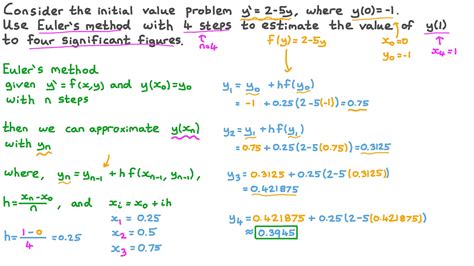 Consider the initial value problem y' = 2-5y, where y(0)=-1.
Use Euler's method with 4 steps to estimate the value of y(1)
to four significant figures.
n=4
f(y) = 2-5y
x₀=0
y₀=-1
x₄=1
Euler's method
given y' = f(x,y) and y(x₀)=y₀
with n steps
then we can approximate y(xₙ)
with yₙ
where, yₙ = yₙ₋₁ + h f(xₙ₋₁, yₙ₋₁),
h = xₙ-x₀/n, and xᵢ = x₀ + ih
h = 1-0/4 = 0.25
x₁ = 0.25
x₂ = 0.5
x₃ = 0.75
y₁ = y₀ + hf(y₀)
= -1 + 0.25(2-5(-1)) = 0.75
y₂ = y₁ + hf(y₁)
= 0.75 + 0.25(2-5(0.75)) = 0.3125
y₃ = 0.3125 + 0.25(2-5(0.3125))
= 0.421875
y₄ = 0.421875 + 0.25(2-5(0.421875))
≈ 0.3945